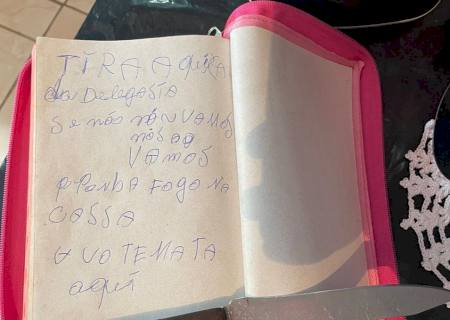 TIRA A quexa
da DelegASIA
Se não nóN VAMOS
nós ag
VAMOS
P Panha FOGO NA
CASSA
E VO TE MATA
aqui